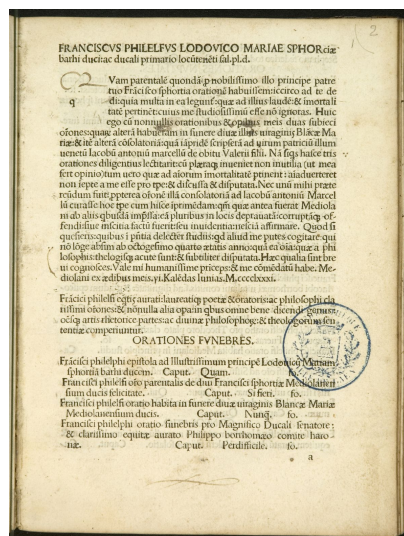 2
FRANCISCVS PHILELFVS LODOVICO MARIAE SPHORciæ
barbi duci: ac ducali primario locũtenẽti sal. pl. d.
q
Vam parentalẽ quondã ꝓ nobilissimo illo principe patre
tuo Frãcisco sphortia orationẽ habuissem: circo ad te de
di: quia multa in ea legunt̃: quæ ad illius laudẽ: & imortali
tatẽ pertinẽt: cuius me studiosissimũ esse nõ ignotas. Huic
ego cũ nonnullis orationibus & opibus meis duas subieci
orõnes: quaꝝ alterã habueram in funere diuæ illius uiraginis Blãcæ Ma
riæ: & itẽ alterã cõsolatoriã: quã iãpridẽ scripserã ad uirum patriciũ illum
uenetũ Iacobũ antoniũ marcellũ de obitu Valerii filii. Nã siqs hasce tris
orationes diligentius lectitarit: cũ plæraq; inueniet non inutilia (ut mea
fert opinio) tum uero quæ ad aiorum imortalitatẽ ptinent: aïaduerteret
non iepte a me esse pro tpe: & discussa & disputata. Nec unũ mihi præte
reũdum fuit: pptereа orõnẽ illã consolatoriã ad Iacobũ antoniũ Marcel
lũ curasse hoc tpe cum hisce iprimẽdam: qꝫs quæ antea fuerat Mediola
ni ab aliis qbusdã impssa: ea pluribus in locis deprauatã: corruptãq; of-
fendissiue inscitia factũ fuerit: seu inuidentia: nescia affirmare. Quod si
quesieris: quibus i pñtia delecter studiis: qd aliud me putes cogitare qui
nõ lõge absim ab octogesimo quarto ætatis anno: qua ea oïa: quæ a phi
losophis: theologisq; acute sunt: & subtiliter disputata. Hæc qualia sint bre
ui cognosces. Vale mi humanissime priceps: & me cõmẽdatũ habe. Me-
diolani ex ædibus meis. vi. Kalẽdas Iunias. M. cccc lxxxi.
Frãcisci philelfi eqtis aurati: laureatiq; poetæ & oratoris: ac philosophi cla
rissimi orõnes: & nõnulla alia opa: in qbus omne bene dicendi genus:
ocsq; artis rhetoricæ partes: ac diuinæ philosophoꝝ: & theologorum sen-
tentiæ comperiuntur.
ORATIONES FVNEBRES.
Frãcisci philelphi epistola ad Illustrissimum principẽ Lodouicũ Mariam
sphortiã barbi ducem. Caput. Quam. fo.
Francisci philelfi orõ parentalis de diui Francisci sphortiæ Mediolanen
sium ducis felicitate. Caput. Si fieri. fo.
Francisci philelfi oratio habita in funere diuæ uiraginis Blancæ Mariæ
Mediolanensium ducis. Caput. Nunq̃. fo.
Francisci philelphi oratio funebris pro Magnifico Ducali senatore:
& clarissimo equitæ aurato Philippo borrhomæo comite haro-
næ. Caput. Perdifficile. fo.
a